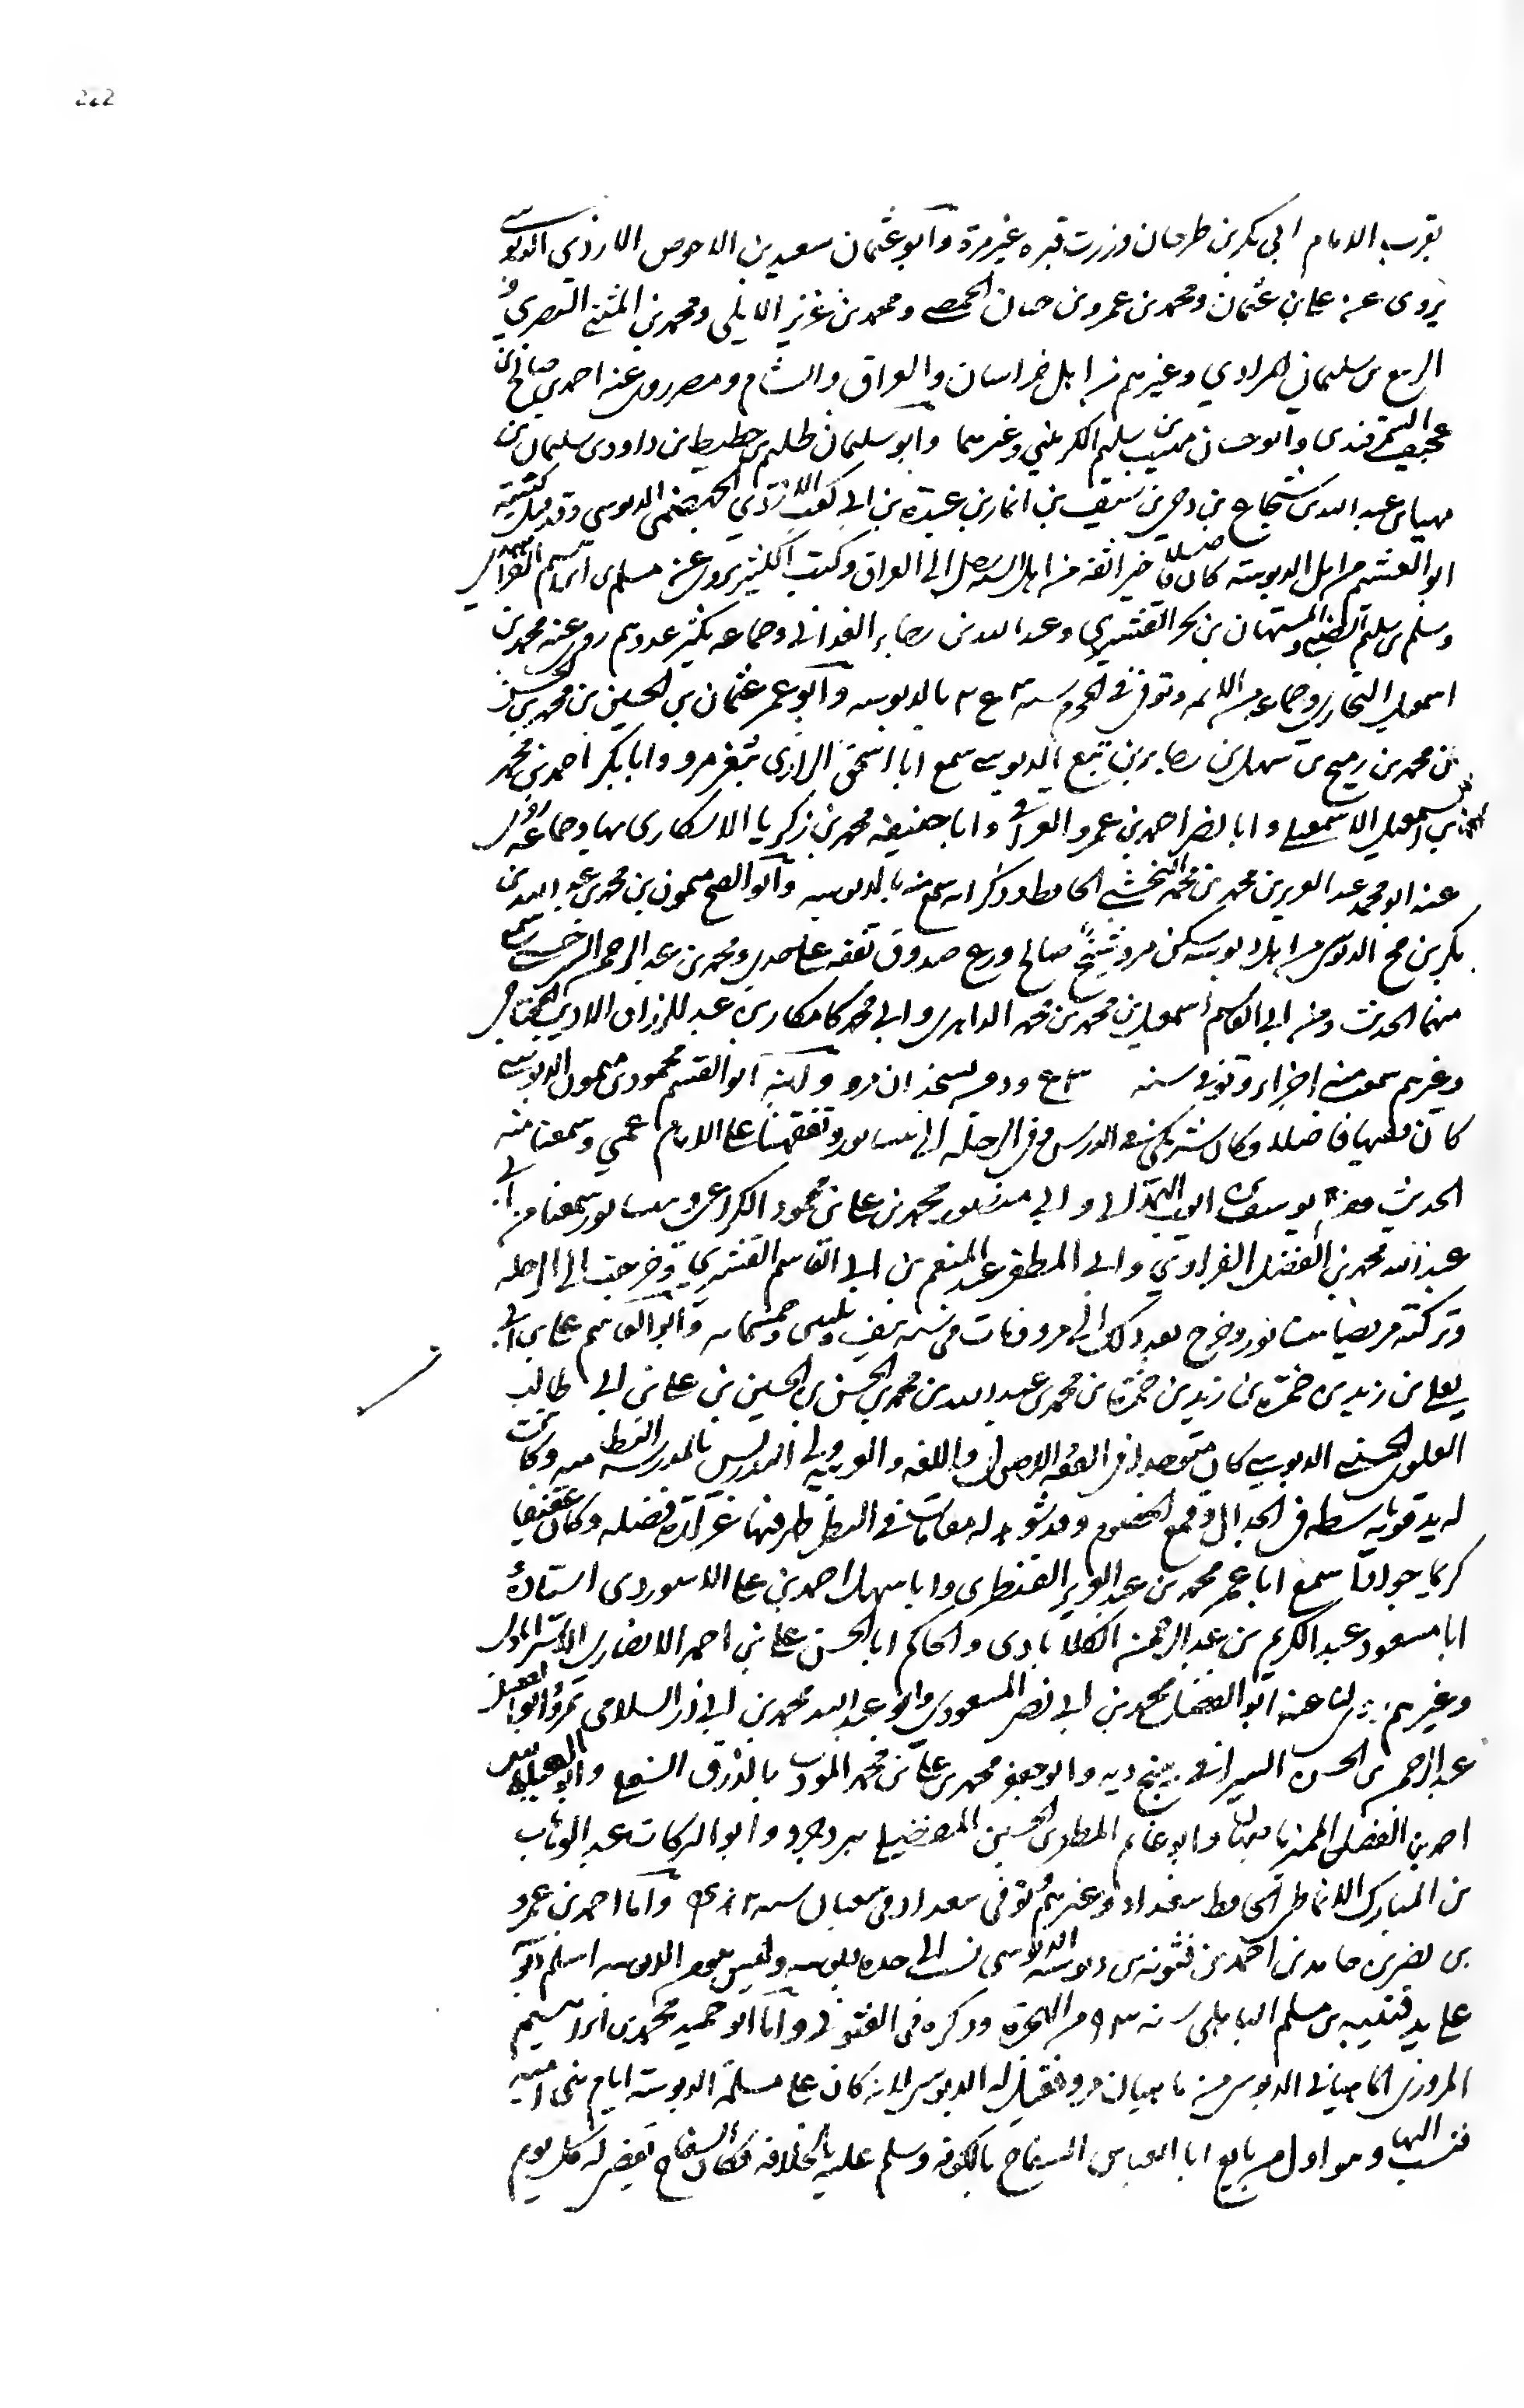 222
بقرب الامام ابي بكر بن طرخان وزرت قبره غير مرة وابو عثمان سعيد بن الاحوص الازدي الدبوسي
يروي عن علي بن عثمان ومحمد بن عمرو بن حنان الحمصي ومحمد بن عزيز الايلي ومحمد بن المثنى البصري و
الربيع بن سليمان المرادي وغيرهم من اهل خراسان والعراق والشام ومصر روى عنه احمد بن صالح بن
عجيف السمرقندي وابو حسان مهيب بن سليم الكرميني وغيرهما وابو سليمان ظليم بن حطيط بن داود بن سليمان بن
مهيا بن عبد الله بن شجاع بن دحي بن سيف بن انمار بن عبدة بن ابي كعب الازدي الجهضمي الدبوسي وقد قيل كنيته
ابو القسم من اهل الدبوسية كان فاضلا خيرا ثقة من اهل السنة رحل الى العراق وكتب الكثير يروي عن مسلم بن ابراهيم الفراهيدي
وسلم بن سليم الضبي والمستهان بن بحر القشيري وعبد الله بن رجاء الغداني وجماعة يكثر عددهم روى عنه محمد بن
اسمعيل البخاري وجماعة من الائمة وتوفي في المحرم سنة بالدبوسية وابو عمر عثمان بن الحسين بن محمد بن الحسين
بن محمد بن رميح بن سهل بن رجاء بن تبع الدبوسي سمع ابا اسحق الرازي بثغر مرو وابا بكر احمد بن محمد
بن اسمعيل الاسمعيلي وابا نصر احمد بن عمرو العراقي وابا حنيفة محمد بن زكريا الاسكاري بها وجماعة روى
عنه ابو محمد عبد العزيز بن محمد بن محمد النخشبي الحافظ وذكر انه سمع منه بالدبوسية وابو الفتح ميمون بن محمد بن عبد الله بن
بكر بن مج الدبوسي من اهل دبوسية سكن مرو شيخ صالح ورع صدوق تفقه على جدي ومحمد بن عبد الرحمن السرخسي سمع
منهما الحديث ومن ابي القاسم اسمعيل بن محمد بن محمد الزاهري وابي محمد كامكار بن عبد الرزاق الاديب المحتاجي
وغيرهم سمعت منه اجزاء وتوفي سنة ودفن بسنجذان مرو وابنه ابو القسم محمود بن ميمون الدبوسي
كان فقيها فاضلا وكان شريكي في الدرس وفي الرحلة الى نيسابور وتفقهنا على الامام عمي وسمعنا منه
الحديث ومن يوسف بن ايوب الهمذاني وابي منصور محمد بن علي بن محمود الكراعي وبنيسابور سمعنا من ابي
عبد الله محمد بن الفضل الفراوي وابي المظفر عبد المنعم بن ابي القاسم القشيري وخرجت الى الرحلة
وتركته مريضا بنيسابور وخرج بعد ذلك الى مرو ومات في سنة نيف وثلثين وخمسمائة وابو القاسم علي بن ابي
يعلى بن زيد بن حمزة بن زيد بن حمزة بن محمد بن عبد الله بن محمد بن الحسن بن الحسين بن علي بن ابي طالب
العلوي الحسيني الدبوسي كان متوحدا في الفقه والاصول واللغة والعربية ولي التدريس بالمدرسة النظامية وكانت
له يد قوية باسطة في الجدل وقمع الخصوم وقد شوهد له مقامات في النظر ظهر فيها غزارة فضله وكان عفيفا
كريما جوادا سمع ابا عمر محمد بن عبد العزيز القنطري وابا سهل احمد بن علي الابيوردي استاذه و
ابا مسعود عبد الكريم بن عبد الرحمن الكلاباذي والحاكم ابا الحسن علي بن احمد الانصاري الاستراباذي
وغيرهم روى لنا عنه ابو الفضل محمد بن ابي نصر المسعودي وابو عبد الله محمد بن ابي ذر السلامي بمرو وابو الفضل
عبد الرحمن بن الحسن السيرافي ببنج ديه وابو جعفر محمد بن علي بن محمد المؤدب بالدزق السفلى وابو العباس
احمد بن الفضل المميز باصبهان وابو غانم المظفر بن الحسين المفضلي ببروجرد وابو البركات عبد الوهاب
بن المبارك الانماطي الحافظ ببغداد وغيرهم توفي ببغداد في شعبان سنة واما احمد بن عمرو
بن نصر بن حامد بن احمد بن دبوسة الدبوسي نسب الى جده دبوسة وليس من الدبوسية اسلم دبوسة
على يد قتيبة بن مسلم الباهلي سنة من الهجرة وذكره في الفتوح واما ابو حميد محمد بن ابراهيم
المروزي الماهياني الدبوسي من ماهيان مرو فقيل له الدبوسي لانه كان على مسلحة الدبوسية ايام بني امية
فنسب اليها وهو اول من بايع ابا العباس السفاح بالكوفة وسلم عليه بالخلافة فكان السفاح يعرف له كل يوم